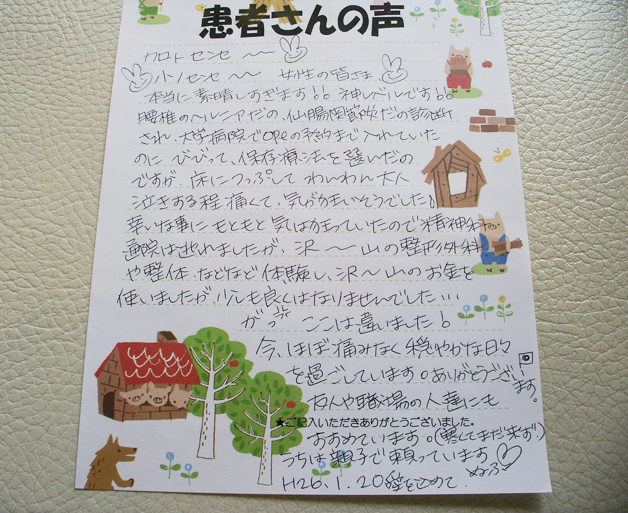 患者さんの声
カロト センセ 〜〜
小ノセンセ 〜 女性の皆さま
本当に素晴しすぎます!! 神レベルです!!
腰椎のヘルニアだの、仙腸関節炎だの診断
され、大学病院でopeの予約まで入れていた
のに びびって、保存療法を選んだの
ですが、床につっぷして わんわん大人
泣きする程 痛くて、気が狂いそうでした!
幸いな事に もともと気は狂っていたので精神科
通院は逃れましたが、沢〜山の整形外科
や整体、などなど体験し、沢〜山のお金を
使いましたが、少しも良くはなりませんでした…
がっ!! ここは違いました!
今、ほぼ痛みなく 穏やかな日々
を過ごしています。ありがとうござい
ます。
友人や職場の人達にも
★ご記入いただきありがとうございました。
すすめています。(悪くてまだ来ず)
うちは親子で頼っています
H26.1.20 を込めて